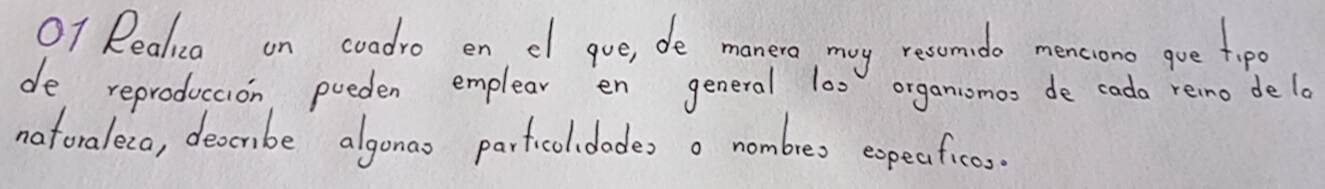 01 Realiza un cuadro en el que, de manera muy resumida menciona que tipo
de reproducción pueden emplear en general los organismos de cada reino de la
naturaleza, describe algunas particulidades o nombres especificos.